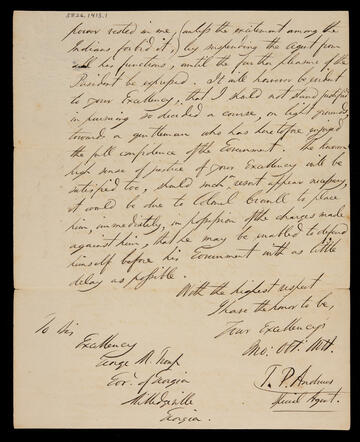 5826.1413.1
power vested in me, (unless the excitement among the
Indians forbid it,) by suspending the agent from
all his functions, until the further pleasure of the
President be expressed. It will however be evident
to your Excellency, that I should not stand justified
in pursuing so decided a course, on light grounds,
towards a gentleman who has heretofore enjoyed
the full confidence of the Government. The known
high sense of justice of your Excellency will be
satisfied too, should such resort appear necessary,
it would be due to Colonel Crowell to place
him, immediately, in possession of the charges made
against him, that he may be enabled to defend
himself before his Government with as little
delay as possible.
With the highest respect
I have the honor to be,
Your Excellency's
Mo: Obt: Svt.
T. P. Andrews
Special Agent.
To His
Excellency
George M. Troup
Gov. of Georgia
Milledgeville
Georgia.